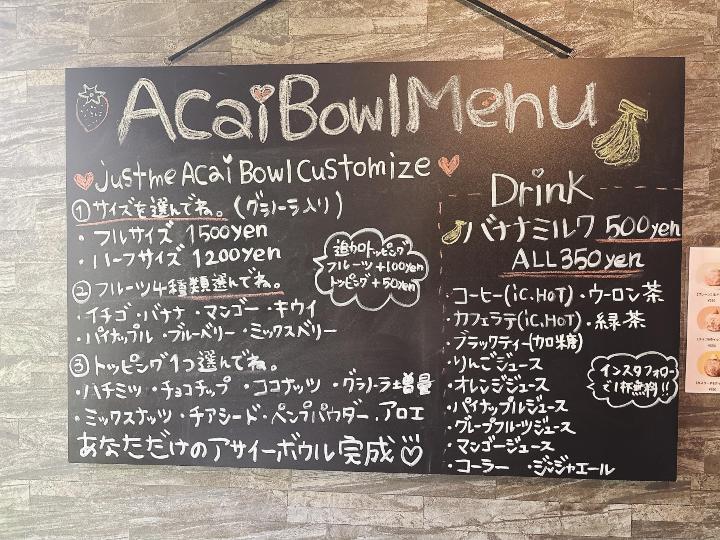 Acai Bowl Menu
just me Acai Bowl Customize
①サイズを選んでね。(グラノーラ入り)
・フルサイズ 1500yen
・ハーフサイズ 1200yen
追加トッピング
フルーツ+100yen
トッピング+50yen
②フルーツ4種類選んでね。
・イチゴ・バナナ・マンゴー・キウイ
・パイナップル・ブルーベリー・ミックスベリー
③トッピング1つ選んでね。
・ハチミツ・チョコチップ・ココナッツ・グラノーラ増量
・ミックスナッツ・チアシード・ヘンプパウダー・アロエ
あなただけのアサイーボウル完成
Drink
バナナミルク 500yen
ALL350yen
・コーヒー(ic.HoT)・ウーロン茶
・カフェラテ(ic.HoT)・緑茶
・ブラックティー(加糖)
・りんごジュース
・オレンジジュース
・パイナップルジュース
・グレープフルーツジュース
・マンゴージュース
・コーラー ・ジンジャエール
インスタフォロー
で1杯無料!!